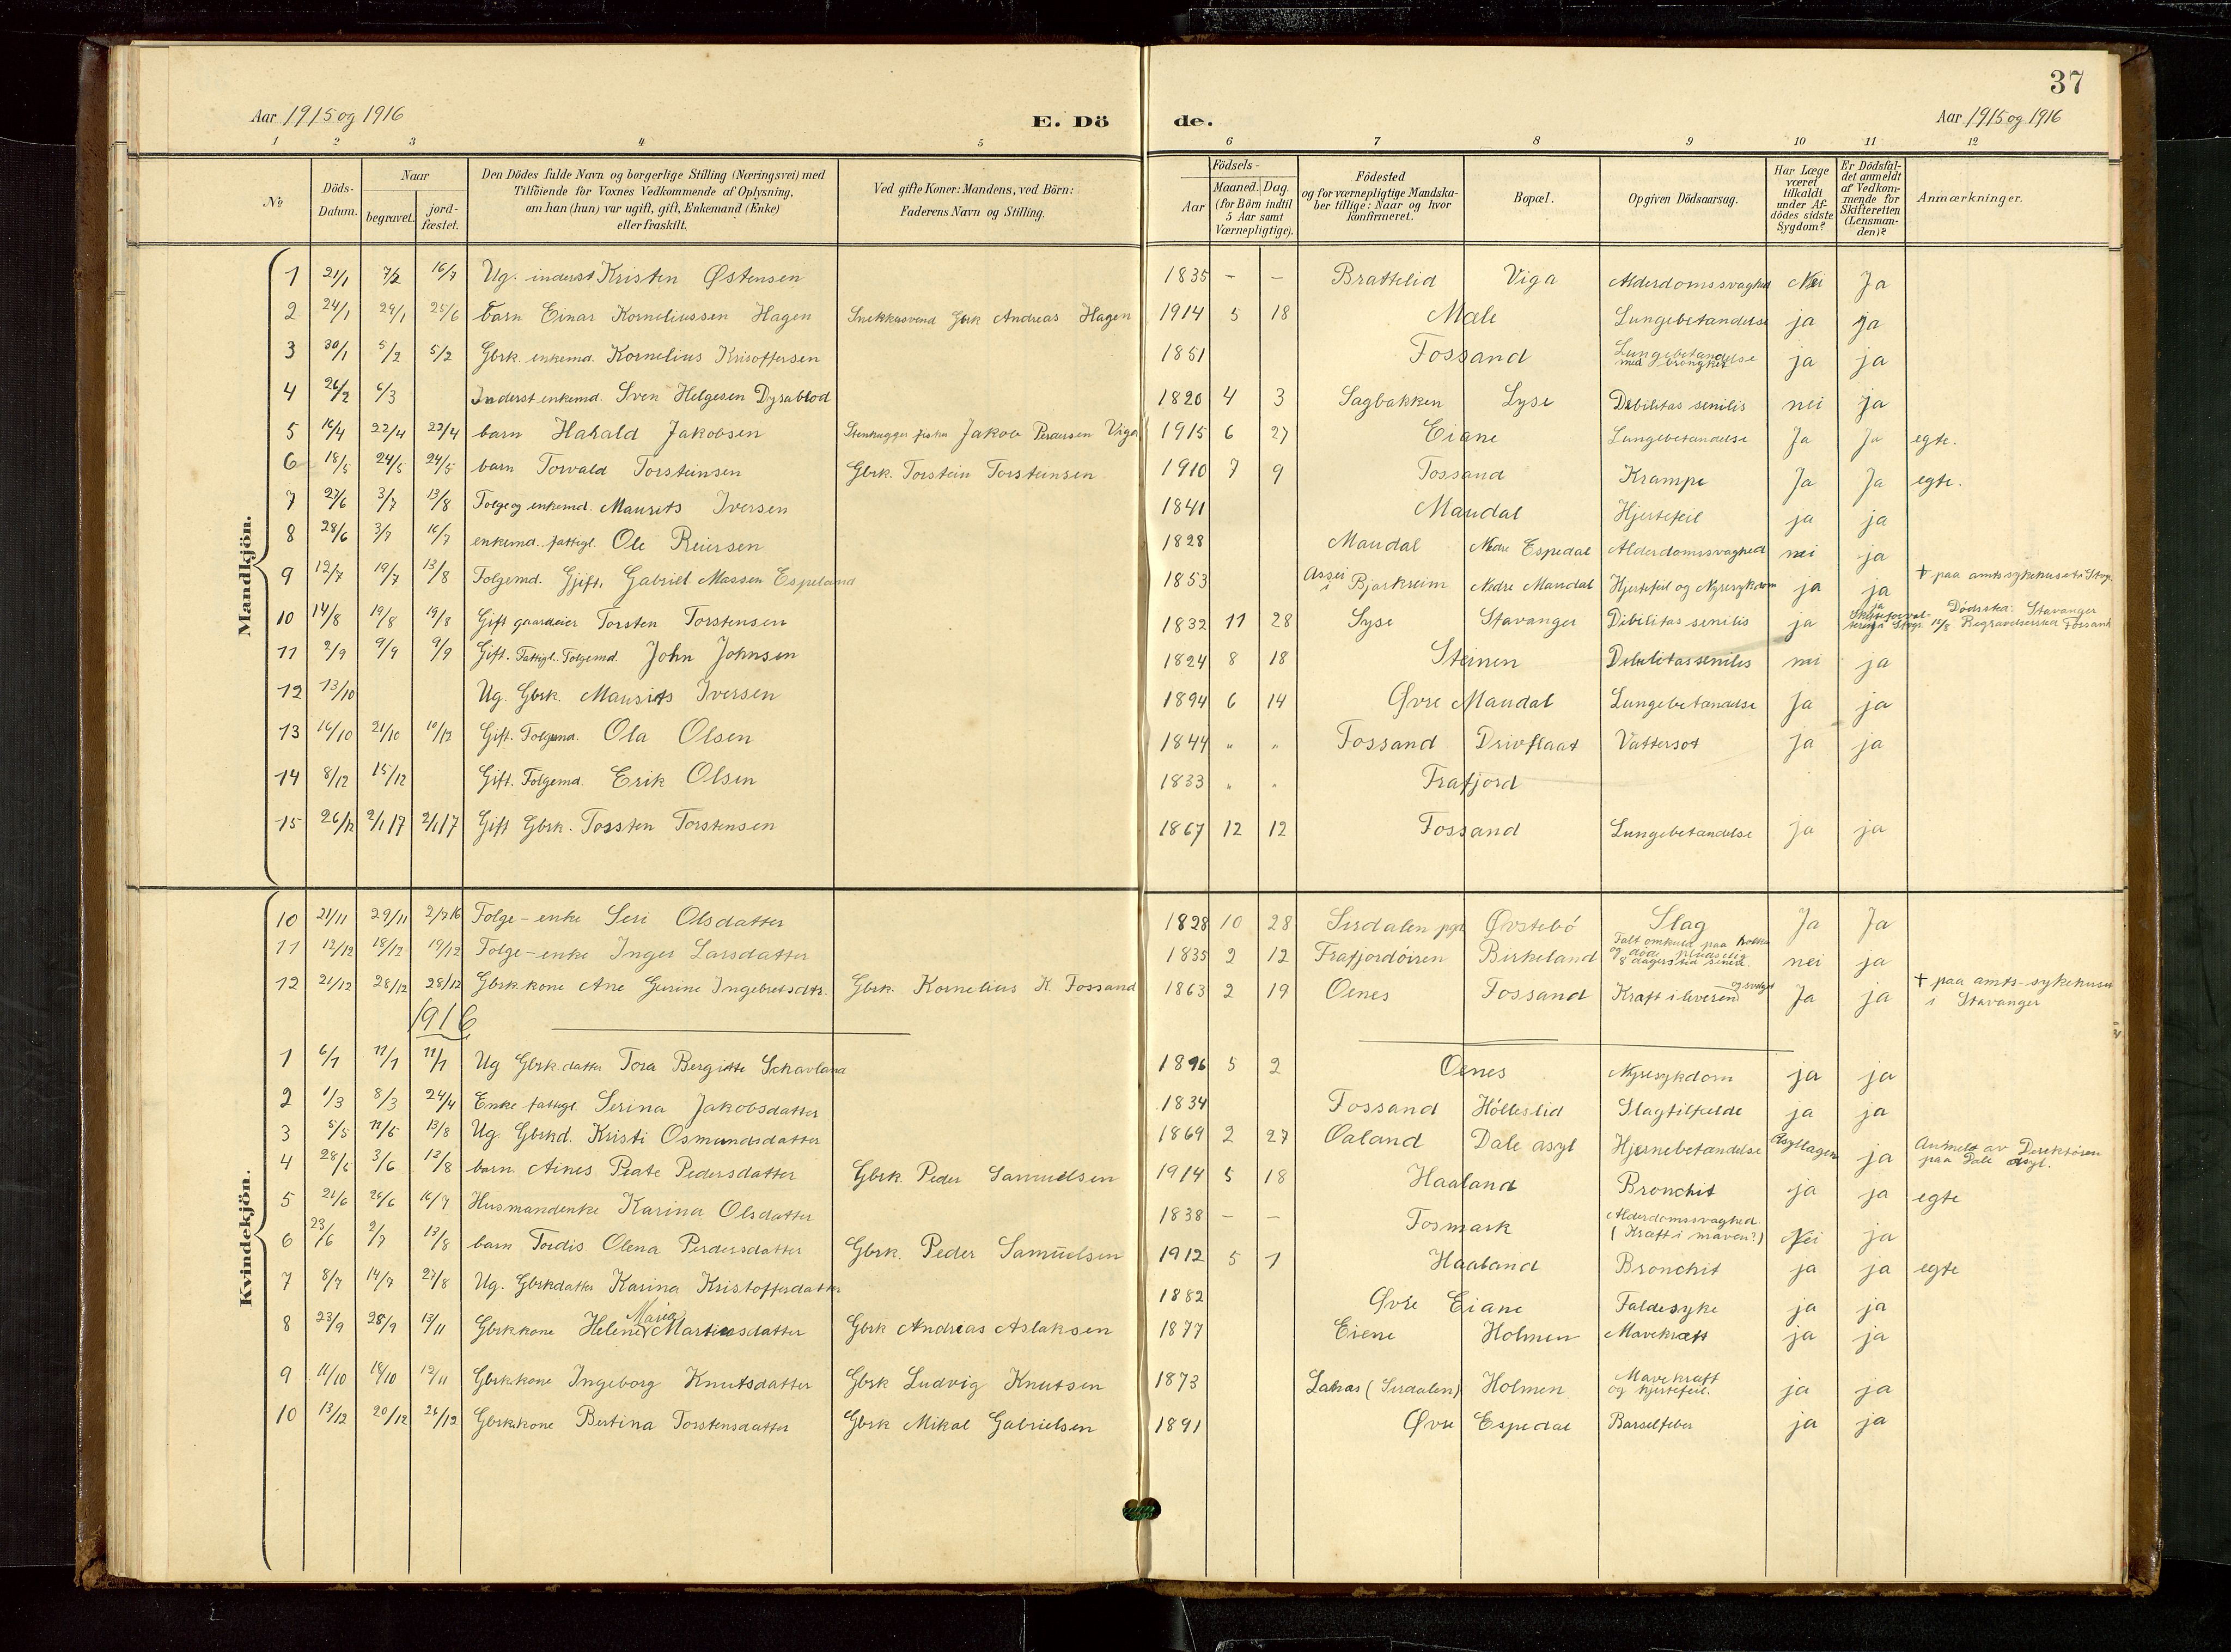 37
Aar 1915 og 1916 E. Dö de. Aar 1915 og 1916
1 2 3 4 5 6 7 8 9 10 11 12
№ Döds-Datum. Naar begravet. jordfæstet. Den Dödes fulde Navn og borgerlige Stilling (Næringsvei) med Tilföiende for Voxnes Vedkommende af Oplysning, om han (hun) var ugift, gift, Enkemand (Enke) eller fraskilt. Ved gifte Koner: Mandens, ved Börn: Faderens Navn og Stilling. Födsels- Aar Maaned. Dag. (for Börn indtil 5 Aar samt Værnepligtige). Födested og for værnepligtige Mandskaber tillige: Naar og hvor konfirmeret. Bopæl. Opgiven Dödsaarsag. Har Læge været tilkaldt under Afdödes sidste Sygdom? Er Dödsfaldet anmeldt af Vedkommende for Skifteretten (Lensmanden)? Anmærkninger.
Mandkjön.
1 21/1 7/2 16/7 Ug. inderst Kristen Østensen 1835 – – Brattelid Viga Alderdomssvaghed Nei Ja
2 24/1 29/1 25/6 barn Einar Korneliussen Hagen Snekkersvend Gbrk Andreas Hagen 1914 5 18 Mæle Lungebetændelse ja ja
3 30/1 5/2 5/2 Gbrk. enkemd. Kornelius Kristoffersen 1851 Fossand Lungebetændelse med brongkit ja ja
4 26/2 6/3 Inderst enkemd. Sven Helgesen Dyrablod 1820 4 3 Sagbakken Lyse Debilitas senilis nei ja
5 16/4 22/4 22/4 barn Harald Jakobsen Stenhugger fisker Jakob Pedersen Viga 1915 6 27 Eiane Lungebetændelse Ja Ja egte.
6 18/5 24/5 24/5 barn Torvald Torsteinsen Gbrk. Torstein Torsteinsen 1910 7 9 Fossand Krampe Ja Ja egte.
7 27/6 3/7 13/8 Folge og enkemd. Maurits Iversen 1841 Maudal Hjertefeil ja ja
8 28/6 3/7 16/7 enkemd. fattigl. Ole Reiersen 1828 Maudal Nedre Espedal Alderdomssvaghed nei ja
9 12/7 19/7 13/8 Folgemd. Gjift. Gabriel Massen Espeland 1853 i Bjerkreim Nedre Maudal Hjertefeil og Nyresykdom ja ja † paa amtssykehuset i Stvgr.
10 14/8 19/8 19/8 Gift gaardeier Torsten Torstensen 1832 11 28 Lyse Stavanger Debilitas senilis ja ja Dødssted: Stavanger 14/8 Begravelsessted Fossand
11 2/9 9/9 9/9 Gift. Fattigl. Folgemd. John Johnsen 1824 8 18 Steinen Debilitas senilis nei ja
12 13/10 Ug. Gbrk. Maurits Iversen 1894 6 14 Øvre Maudal Lungebetændelse Ja ja
13 16/10 21/10 10/12 Gift. Folgemd. Ola Olsen 1844 " " Fossand Drivflaat Vattersot Ja ja
14 8/12 15/12 Gift. Folgemd. Erik Olsen 1833 " " Frafjord
15 26/12 2/1 17 2/1 17 Gift Gbrk. Torsten Torstensen 1867 12 12 Fossand Lungebetændelse Ja ja
Kvindekjön.
10 21/11 29/11 2/7 16 Folge-enke Seri Olsdatter 1828 10 28 Sirdalen pgd Øvstebö Slag Ja Ja
11 12/12 18/12 19/12 Folge-enke Inger Larsdatter 1835 2 12 Frafjordöiren Birkeland Falt omkuld paa og døde pludselig 8 dagers tid senere. nei ja
12 21/12 28/12 28/12 Gbrk.kone Ane Gurine Ingebretsdtr. Gbrk. Kornelius K. Fossand 1863 2 19 Oenes Fossand Kræft i leveren og svulst Ja ja † paa amts-sykehuset i Stavanger
1916
1 6/1 11/1 11/1 Ug Gbrk.datter Tora Bergitte Skavland 1896 5 2 Oenes Nyresykdom ja ja
2 1/3 8/3 24/4 Enke fattigl. Serina Jakobsdatter 1834 Fossand Hölleslid Slagtilfelde ja ja
3 5/5 11/5 13/8 Ug. Gbrkd. Kristi Osmundsdatter 1869 2 27 Oaland Dale asyl Hjernebetændelse Asyllægen ja Anmeldt av Direktøren paa Dale asyl.
4 28/5 3/6 13/8 barn Aines Peate Pedersdatter Gbrk. Peder Samuelsen 1914 5 18 Haaland Bronchit ja ja egte
5 21/6 26/6 16/7 Husmandenke Karina Olsdatter 1838 – – Fosmark Alderdomssvaghed. (Kræft i maven?) Nei ja
6 23/6 2/7 13/8 barn Tordis Olena Pedersdatter Gbrk. Peder Samuelsen 1912 5 1 Haaland Bronchit ja ja egte
7 8/7 14/7 27/8 Ug. Gbrkdatter Karina Kristoffersdatter 1882 Øvre Eiane Faldesyke ja ja
8 23/9 28/9 13/11 Gbrkkone Helene Maria Martinsdatter Gbrk Andreas Aslaksen 1877 Eiene Holmen Mavekræft ja ja
9 11/10 18/10 12/11 Gbrk.kone Ingeborg Knutsdatter Gbrk Ludvig Knutsen 1873 (Sirdalen) Holmen Mavekræft og hjertefeil. ja ja
10 13/12 20/12 26/12 Gbrk.kone Bertina Torstensdatter Gbrk Mikal Gabrielsen 1891 Øvre Espedal Barselfeber ja ja